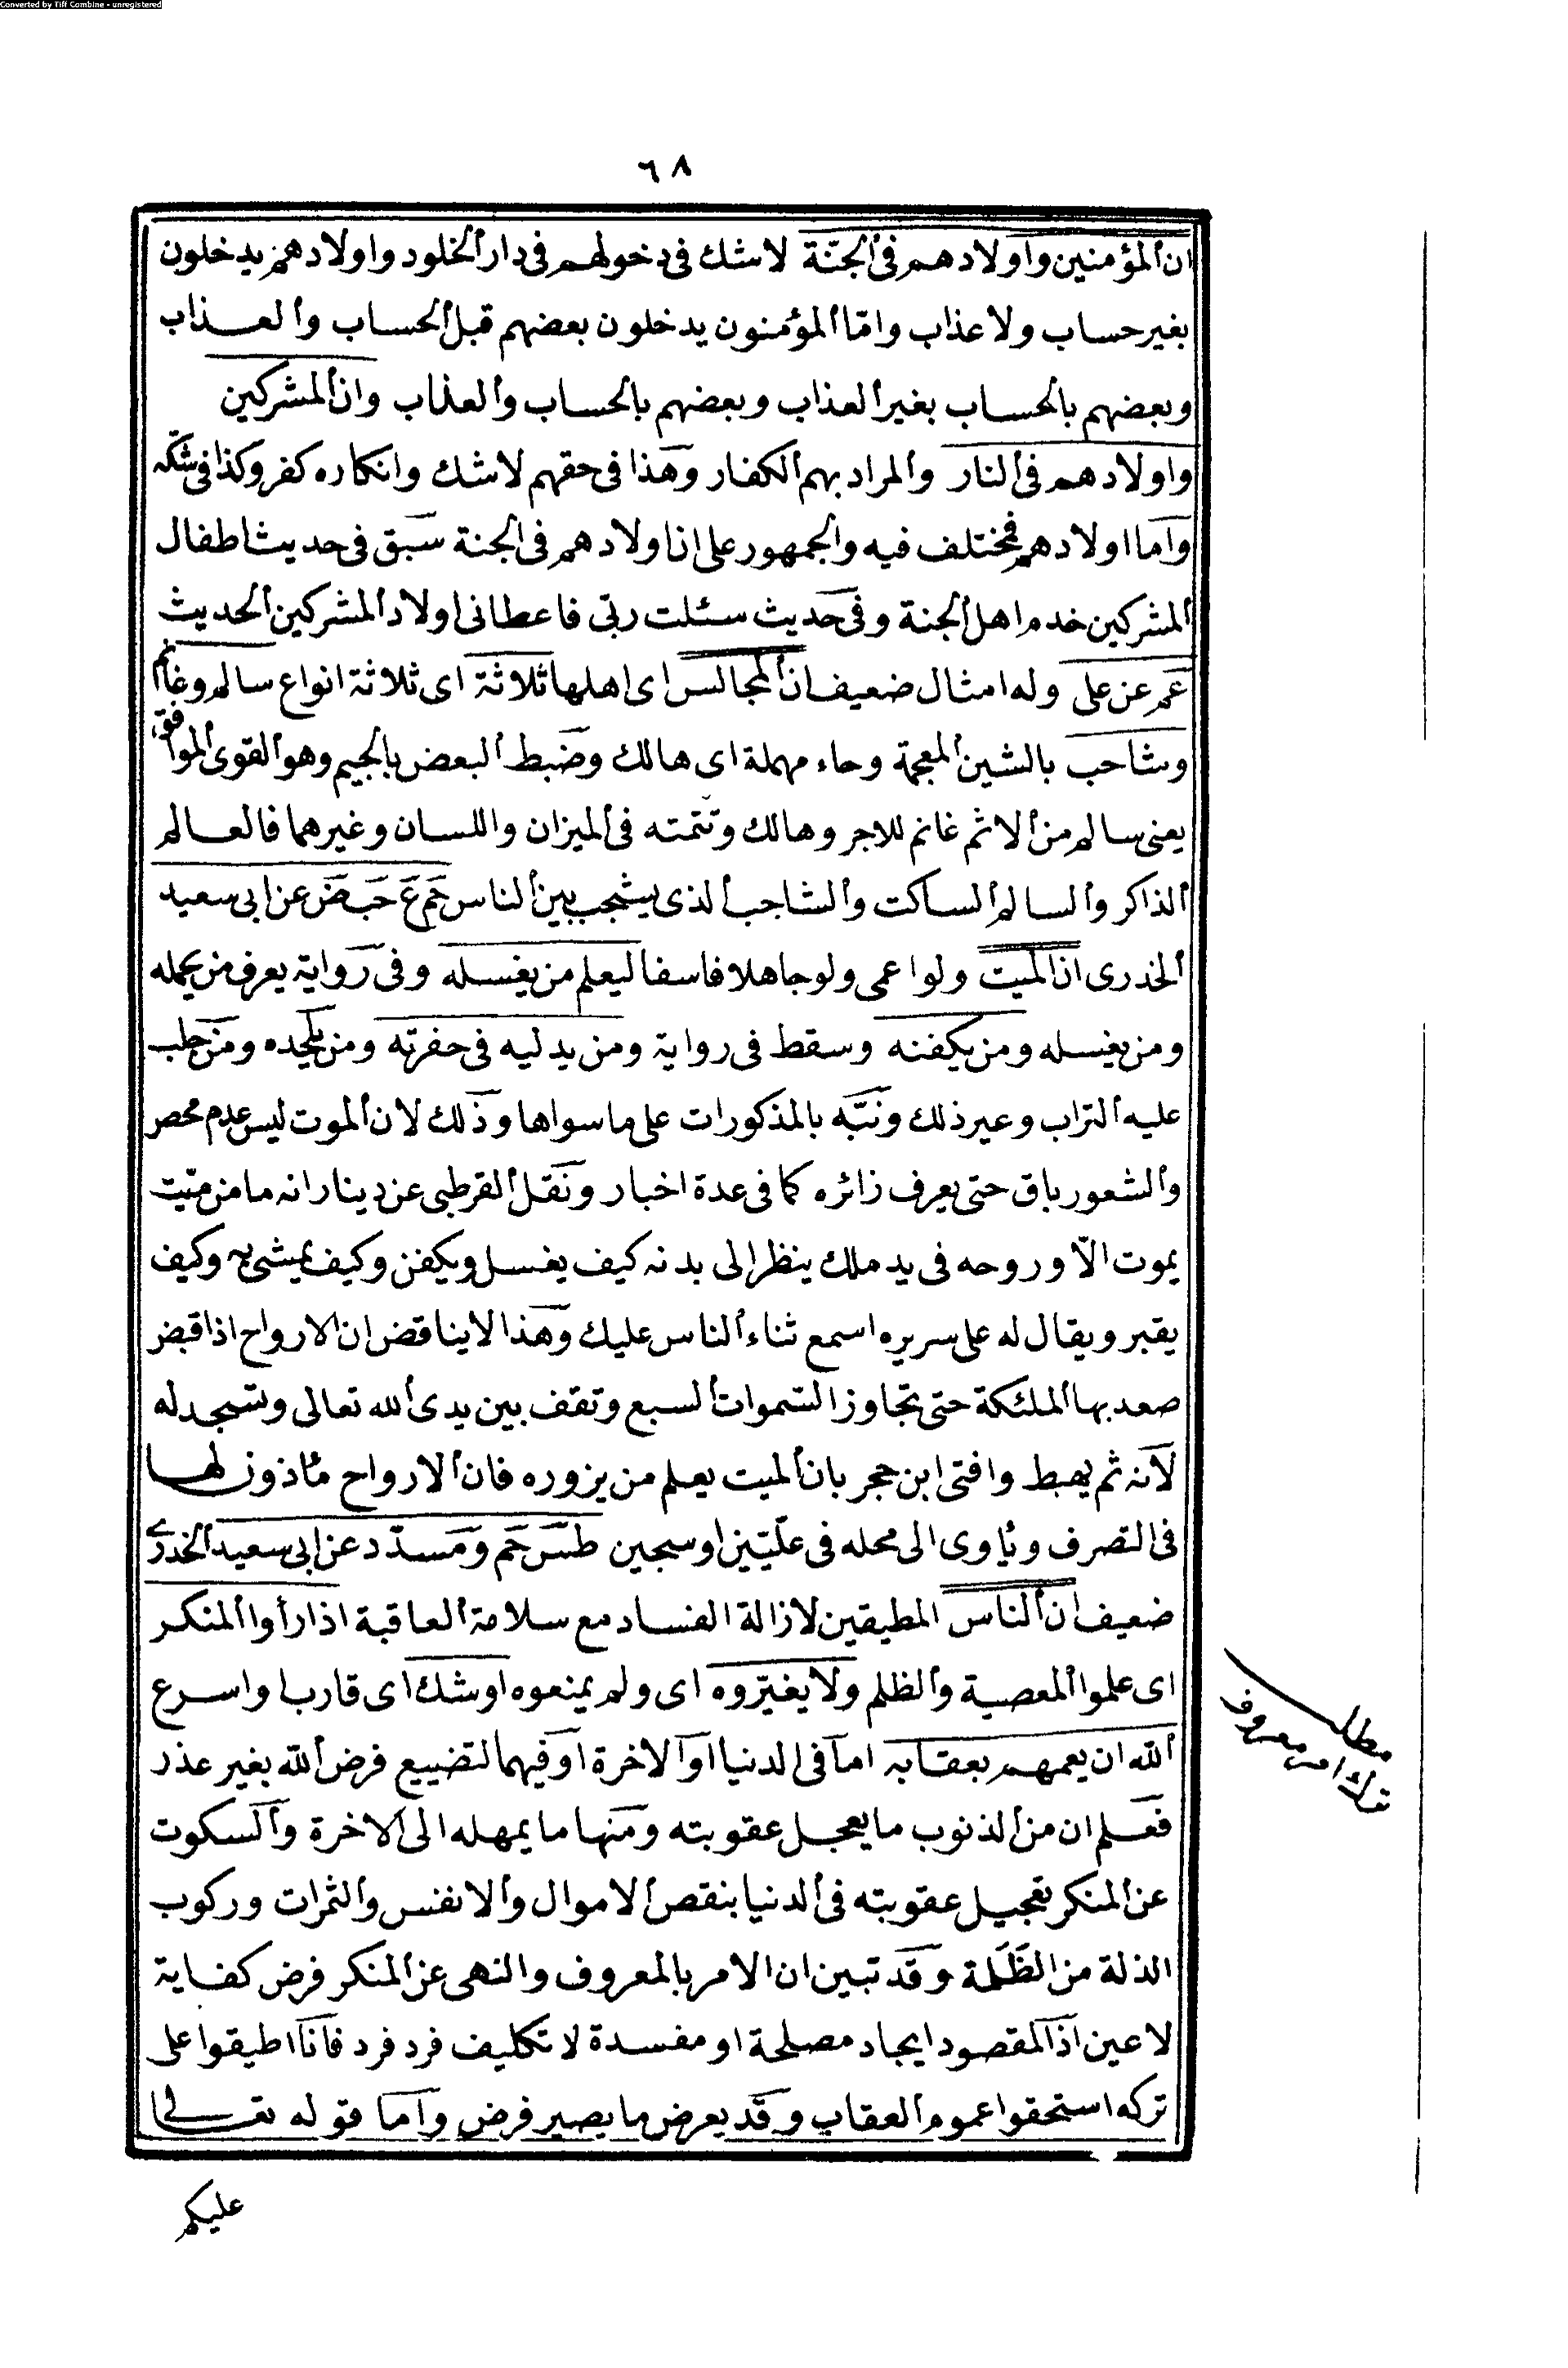 Converted by Tiff Combine - unregistered
٦٨
ان المؤمنين واولادهم فى الجنّة لاشك فى دخولهم فى دار الخلود واولادهم يدخلون
بغير حساب ولا عذاب وامّا المؤمنون يدخلون بعضهم قبل الحساب والعذاب
وبعضهم بالحساب بغير العذاب وبعضهم بالحساب والعذاب وان المشركين
واولادهم فى النار والمراد بهم الكفار وهذا فى حقهم لاشك وانكاره كفر وكذا فى شكّه
واما اولادهم فمختلف فيه والجمهور على ان اولادهم فى الجنة سبق فى حديث اطفال
المشركين خدم اهل الجنة وفى حديث سئلت ربّى فاعطانى اولاد المشركين الحديث
عم عن على وله امثال ضعيف ان المجالس اى اهلها ثلاثة اى ثلاثة انواع سالم وغانم
وشاحب بالشين المعجمة وحاء مهملة اى هالك وضبط البعض بالجيم وهو القوى الموافق
يعنى سالم من الاثم غانم للاجر وهالك وتتمته فى الميزان واللسان وغيرهما فالعالم
الذاكر والسالم الساكت والشاجب الذى يشجب بين الناس حم ع حب ض عن ابى سعيد
الخدرى ان الميت ولو اعمى ولو جاهلا فاسقا ليعلم من يغسله وفى رواية يعرف من يحمله
ومن يغسله ومن يكفنه وسقط فى رواية ومن يدليه فى حفرته ومن يلحده ومن حلب
عليه التراب وعير ذلك ونبّه بالمذكورات على ما سواها وذلك لان الموت ليس عدم محصر
والشعور باق حتى يعرف زائره كما فى عدة اخبار ونقل القرطبى عن دينار انه ما من ميّت
يموت الّا وروحه فى يد ملك ينظر الى بدنه كيف يغسل ويكفن وكيف يمشى به وكيف
يقبر ويقال له على سريره اسمع ثناء الناس عليك وهذا لا يناقض ان الارواح اذا قبض
صعد بها الملئكة حتى تجاوز السّموات السبع وتقف بين يدى الله تعالى وتسجد له
لانه ثم يهبط وافتى ابن حجر بان الميت يعلم من يزوره فان الارواح مأذون لها
فى التصرف ويأوى الى محله فى علّيّين او سجين طس حم ومسدّد عن ابى سعيد الخدرى
ضعيف ان الناس المطيقين لازالة الفساد مع سلامة العاقبة اذا رأوا المنكر
اى علموا المعصية والظلم ولا يغيّروه اى ولم يمنعوه اوشك اى قارب واسرع
الله ان يعمهم بعقابه اما فى الدنيا او الاخرة او فيهما لتضييع فرض الله بغير عذر
فعلم ان من الذنوب ما يعجل عقوبته ومنها ما يمهله الى الاخرة والسكوت
عن المنكر تعجيل عقوبته فى الدنيا بنقص الاموال والانفس والثمرات وركوب
الذلة من الظَلَمة وقد تبين ان الامر بالمعروف والنهى عن المنكر فرض كفاية
لا عين اذ المقصود ايجاد مصلحة او مفسدة لا تكليف فرد فرد فاذا اطبقوا على
تركه استحقوا عموم العقاب وقد يعرض ما يصير فرض واما قوله تعالى
مطلب
ترك امر معروف
عليكم